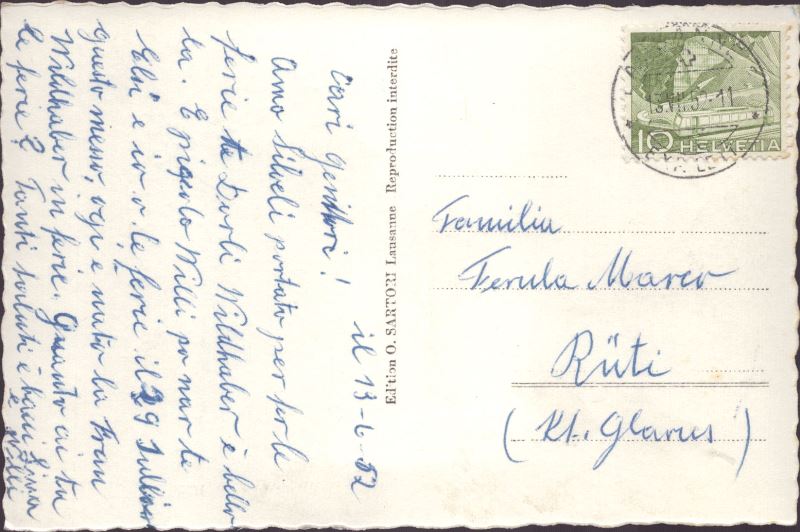 Cari genittori!
il 13-6-52
Amo Silveli portato per far le
ferie ta Dorli Wildhaber è bello
la. E picolo Willi po nar te
Elsi e io o le ferie il 29 Julliö
questo messo, ogi e nuto la Frau
Wildhaber in ferie. Quanto ai tu
le ferie? Tanti saluti è baci
Edition O. SARTORI Lausanne Reproduction interdite
HELVETIA
10
Familia
Ferula Marco
Rüti
(Kt. Glarus)